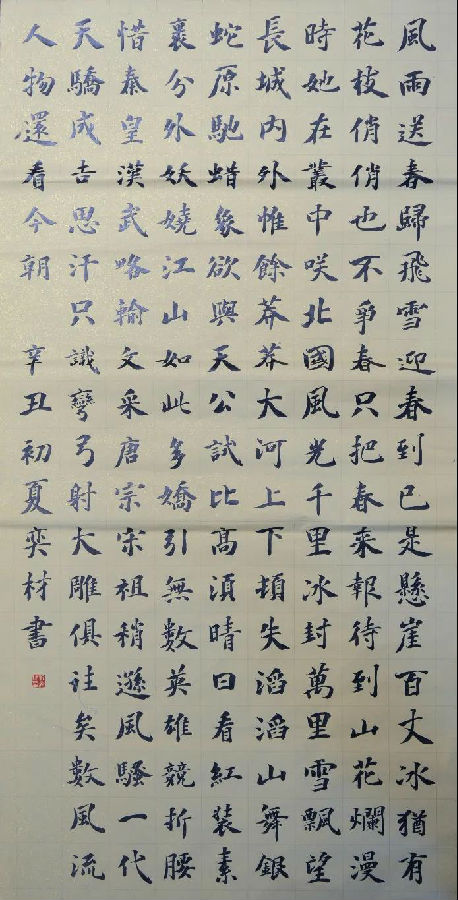 風雨送春歸飛雪迎春到已是懸崖百丈冰猶有
花枝俏俏也不爭春只把春来報待到山花爛漫
時她在叢中咲北國風光千里冰封萬里雪飄望
長城內外惟餘莽莽大河上下頓失滔滔山舞銀
蛇原馳蜡象欲與天公試比高須晴日看紅裝素
裹分外妖嬈江山如此多嬌引無數英雄競折腰
惜秦皇漢武略輸文采唐宗宋祖稍遜風騷一代
天驕成吉思汗只識彎弓射大雕俱往矣數風流
人物還看今朝 辛丑初夏奕材書